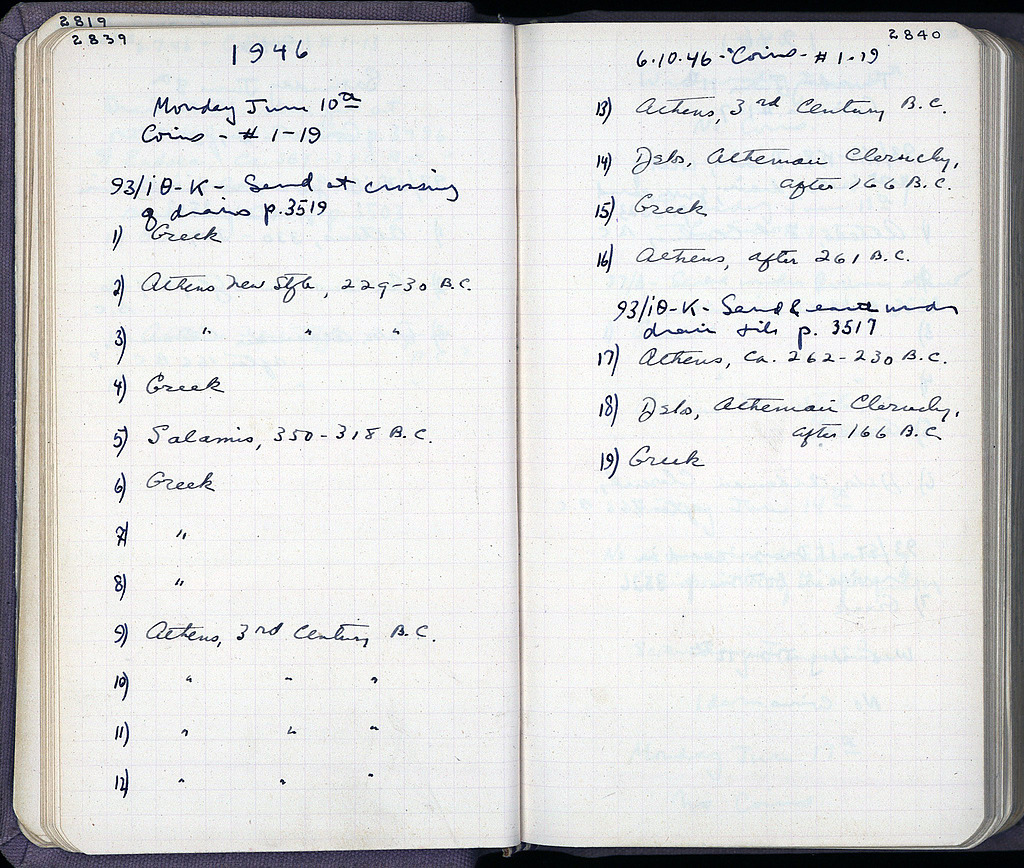 2819
2839
1946
Monday June 10th
Coins - # 1-19
93/ΙΘ-Κ - Sand at crossing
of drains p. 3519
1) Greek
2) Athens New Style, 229-30 B.C.
3) " " "
4) Greek
5) Salamis, 350-318 B.C.
6) Greek
7) "
8) "
9) Athens, 3rd Century B.C.
10) " " "
11) " " "
12) " " "
2840
6.10.46 - Coins - # 1-19
13) Athens, 3rd Century B.C.
14) Delos, Athenian Cleruchy,
after 166 B.C.
15) Greek
16) Athens, after 261 B.C.
93/ΙΘ-Κ - Sand & earth
drain p. 3517
17) Athens, ca. 262-230 B.C.
18) Delos, Athenian Cleruchy,
after 166 B.C.
19) Greek